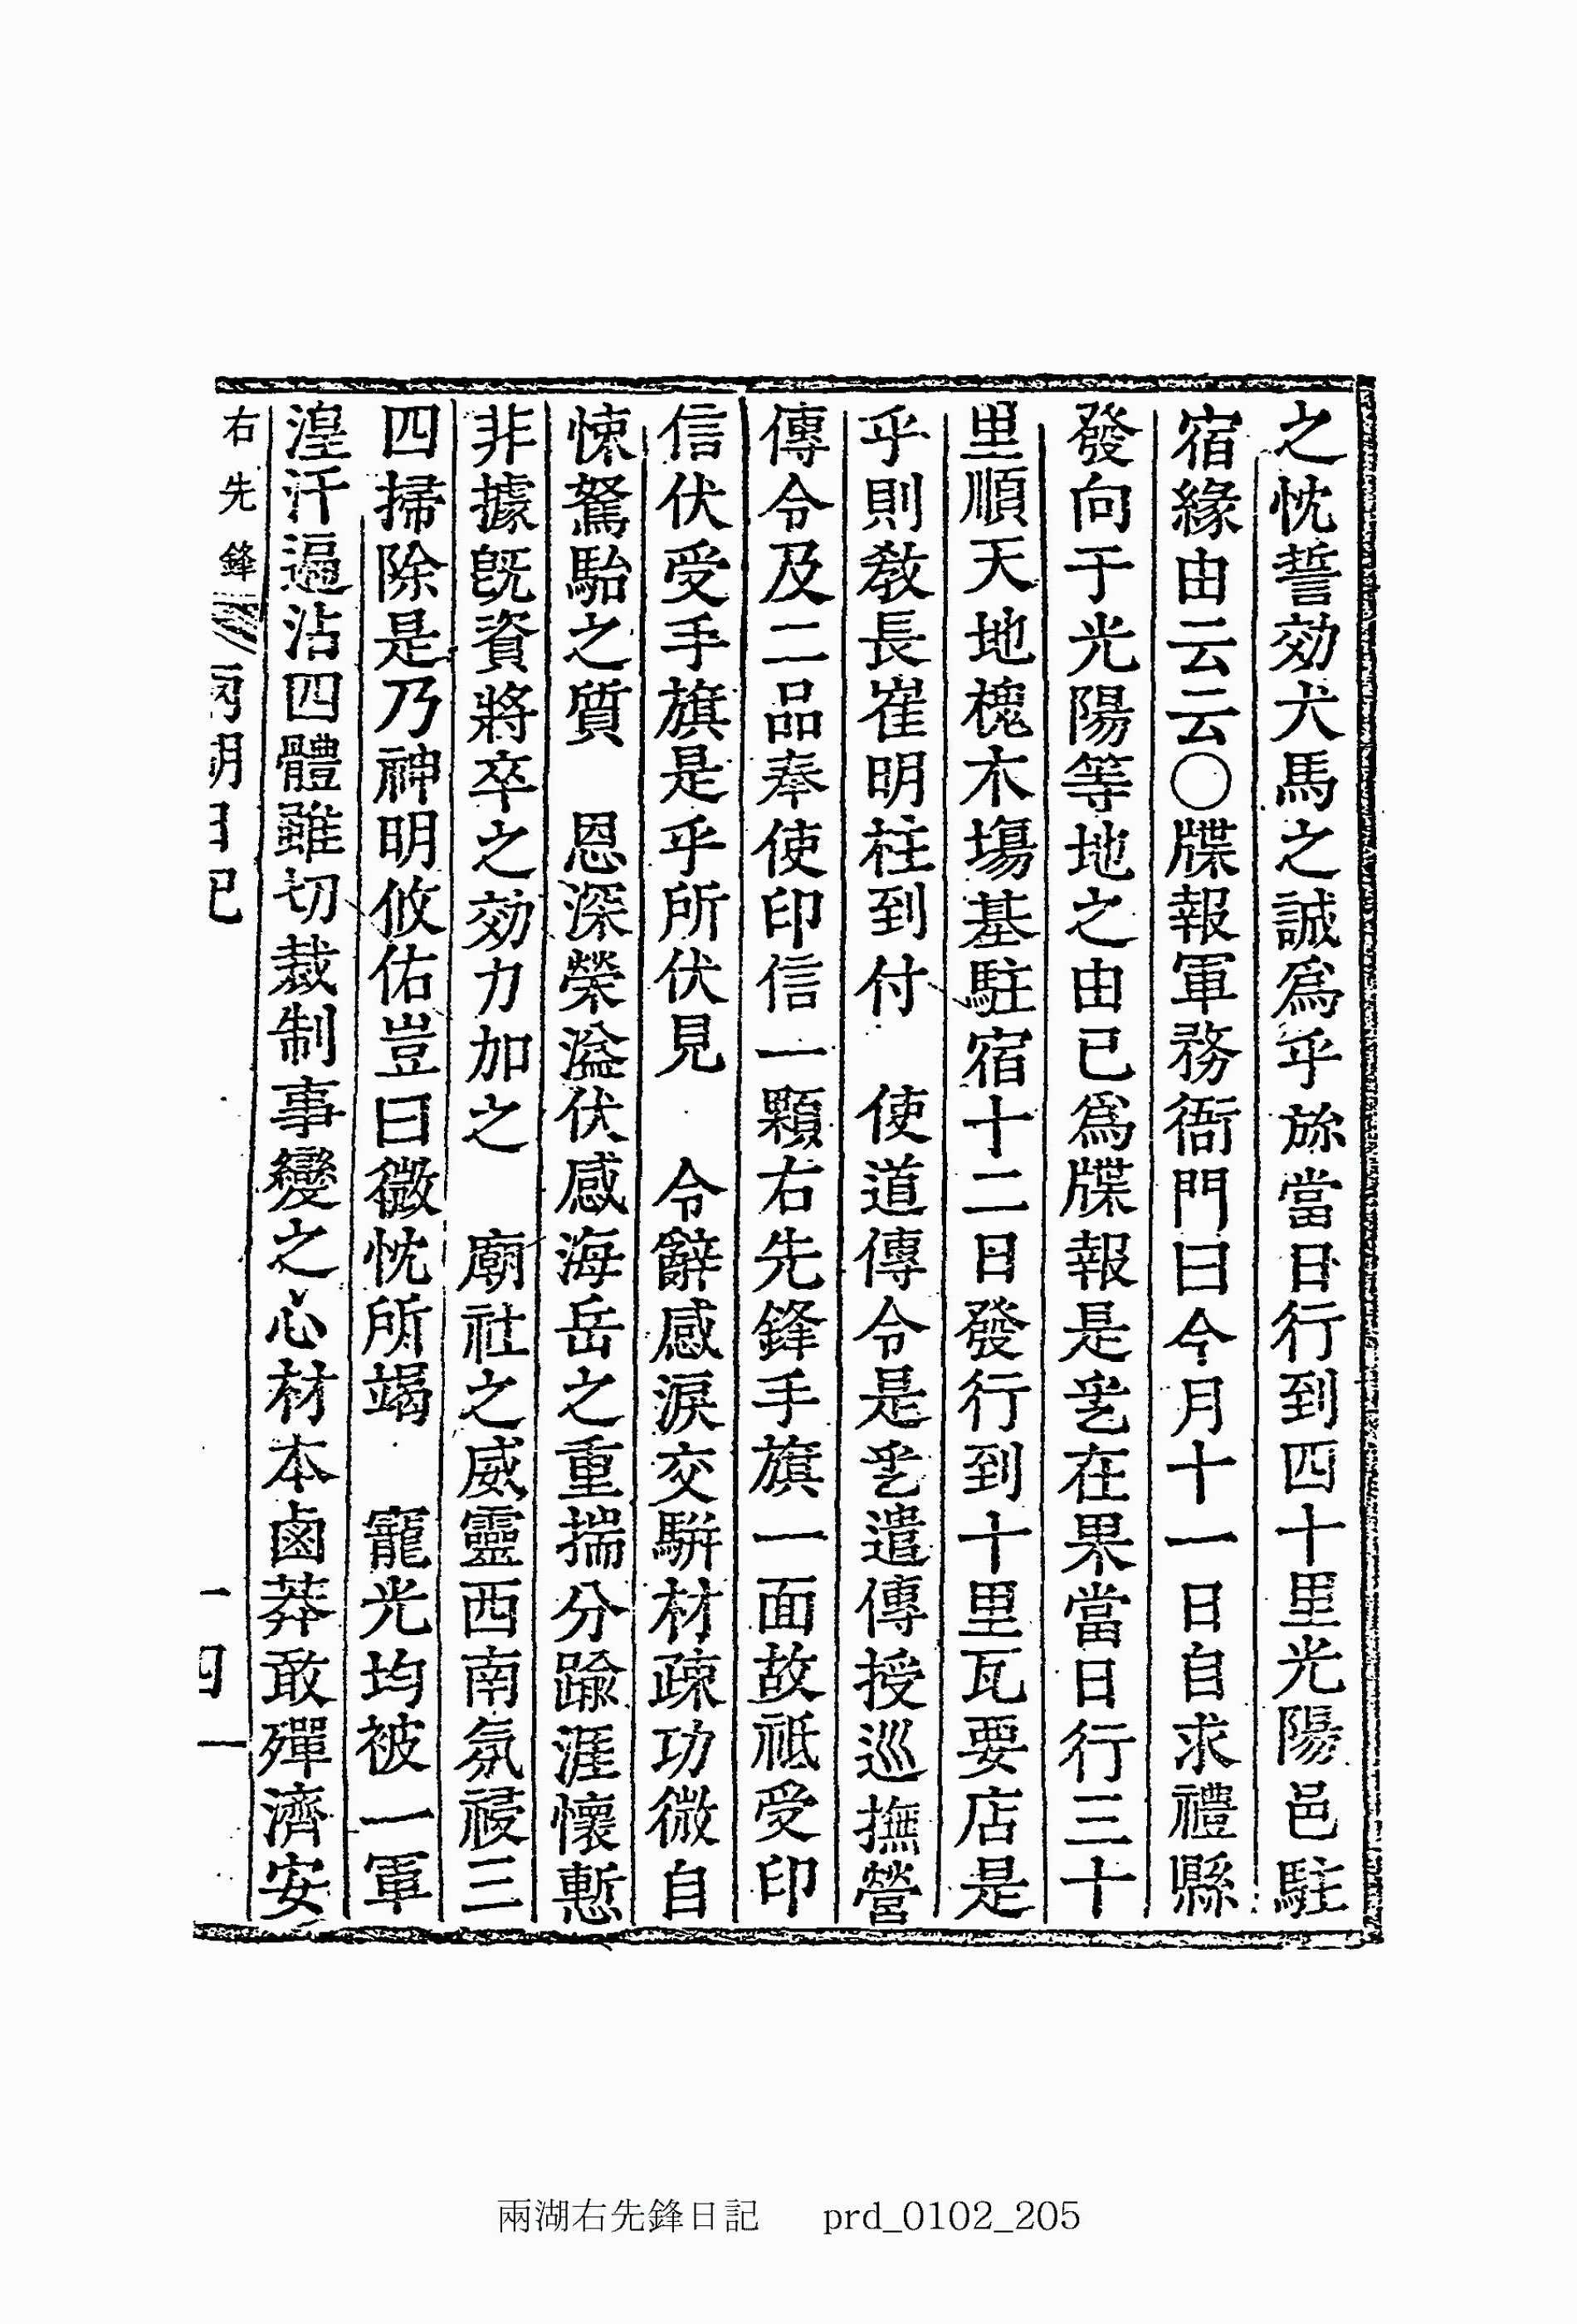 之忱誓効犬馬之誠爲乎旀當日行到四十里光陽邑駐
宿緣由云云〇牒報軍務衙門曰今月十一日自求禮縣
發向于光陽等地之由已爲牒報是乎在果當日行三十
里順天地槐木塲基駐宿十二日發行到十里瓦要店是
乎則敎長崔明柱到付 使道傳令是乎遣傳授巡撫營
傳令及二品奉使印信一顆右先鋒手旗一面故祗受印
信伏受手旗是乎所伏見 令辭感淚交騈材疎功微自
悚駑駘之質 恩深榮溢伏感海岳之重揣分踰涯懷慙
非據旣資將卒之効力加之 廟社之威靈西南氛祲三
四掃除是乃神明攸佑豈曰微忱所竭 寵光均被一軍
湟汗遍沾四體雖切裁制事變之心材本鹵莽敢殫濟安
右先鋒 兩湖日記 一四一
兩湖右先鋒日記 prd_0102_205